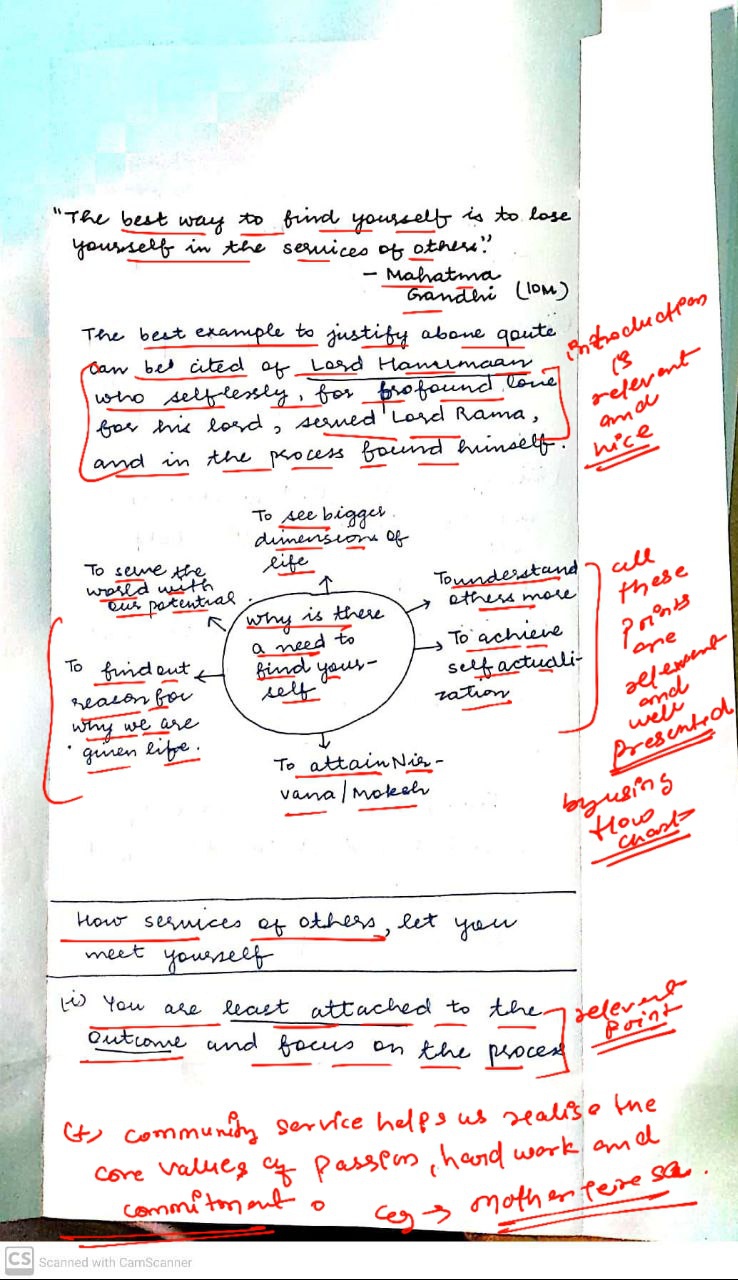 "The best way to find yourself is to lose
yourself in the services of others."
- Mahatma
Gandhi (10M)
The best example to justify above qoute
can be cited of Lord Hanumaan
who selflessly, for profound love
for his lord, served Lord Rama,
and in the process found himself.
introduction
is
relevent
and
nice
To see bigger
dimensions of
life
To serve the
world with
our potential
To understand
others more
why is there
a need to
find your-
self
To achieve
self actuali-
zation
To find out
reason for
why we are
given life.
To attain Nir-
vana/Moksh
all
these
points
are
relevent
and
well
presented
by using
flow
chart
How services of others, let you
meet yourself
(i) You are least attached to the
outcome and focus on the process
relevent
point
(+) community service helps us realise the
core values of passion, hard work and
commitment.
eg → mother teresa.
CS Scanned with CamScanner